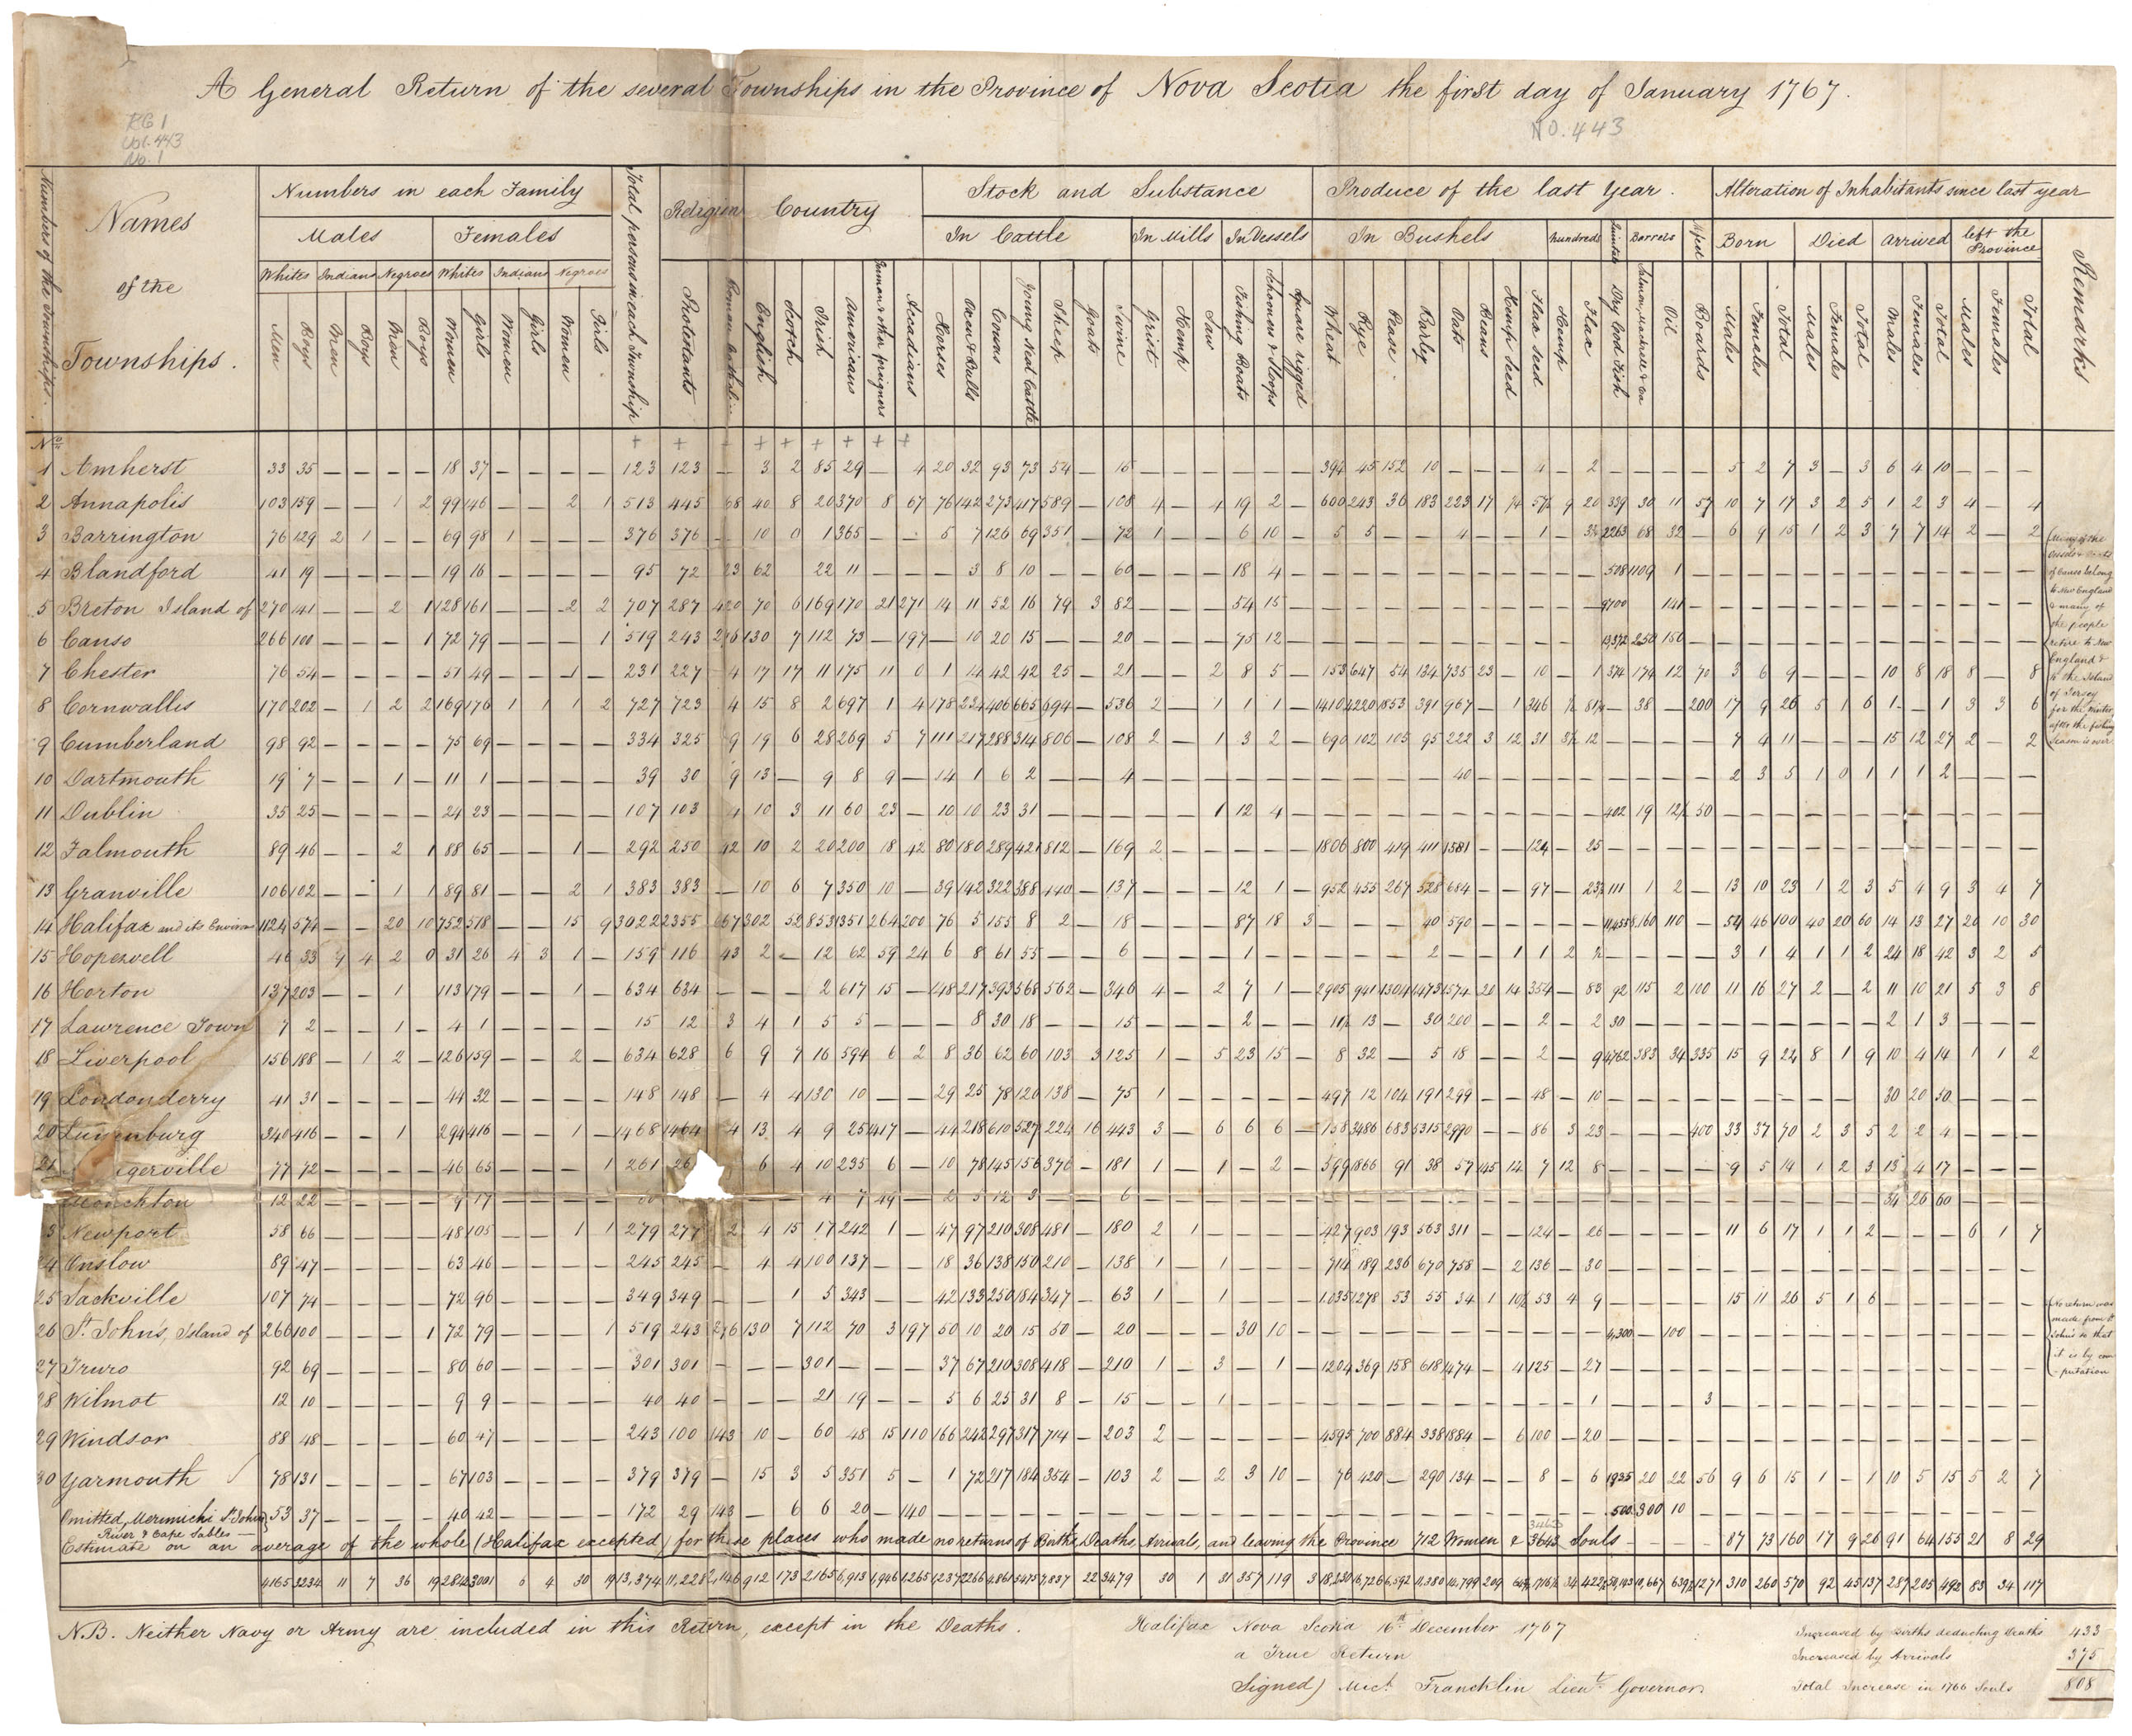 A General Return of the several Townships in the Province of Nova Scotia the first day of January 1767.
RG 1
Vol. 443
No. 1
NO. 443
Numbers of the Townships.
Names of the Townships.
Numbers in each Family
Males
Females
Whites Indians Negroes Whites Indians Negroes
Men Boys Men Boys Men Boys Women Girls Women Girls Women Girls
Total persons in each Township
Religion
Protestants
Country
English Scotch Irish Americans Acadians
Stock and Substance
In Cattle
Horses Oxen & Bulls Cows Young neat Cattle Sheep Goats Swine
In Mills
Grist Hemp Saw
In Vessels
Fishing Boats Schooners & Sloops Square rigged
Produce of the last Year.
In Bushels
Wheat Rye Pease Barley Oats Beans Hemp seed Flax seed
hundreds
Hemp Flax
Quintals
Dry Cod Fish
Barrels
Oil
Boards
Alteration of Inhabitants since last year
Born
Males Females Total
Died
Males Females Total
arrived
Males Females Total
left the Province
Males Females Total
Remarks
No
1 Amherst 33 35 — — — — 18 37 — — — — 123 123 — 3 2 85 29 — 4 20 32 93 73 54 — 15 — — — — — — 394 45 152 10 — — — 4 — 2 — — — — 5 2 7 3 — 3 6 4 10 — — —
2 Annapolis 103 159 — — 1 2 99 146 — — 2 1 513 445 68 40 8 20 370 8 67 76 142 273 417 589 — 108 4 — 4 19 2 — 600 243 36 183 223 17 9 20 339 30 11 57 10 7 17 3 2 5 1 2 3 4 — 4
3 Barrington 76 129 2 1 — — 69 98 1 — — — 376 376 — 10 0 1 365 — — — 5 7 126 69 351 — 72 1 — — 6 10 — 5 5 — — 4 — — 1 — 2263 68 32 — 6 9 15 1 2 3 7 7 14 2 — 2
4 Blandford 41 19 — — — — 19 16 — — — — 95 72 23 62 22 11 — — — 3 8 10 — — 60 — — — 18 4 — 508 1109 1
5 Breton Island of 270 141 — — 2 1 128 161 — — 2 2 707 287 420 70 6 169 170 21 271 14 11 52 16 79 3 82 — — — 54 15 — 9700 141
6 Canso 266 100 — — — 1 72 79 — — — 1 519 243 276 130 7 112 73 — 197 — 10 20 15 — — 20 — — — 75 12 — 250 150
7 Chester 76 54 — — — — 51 49 — — 1 — 231 227 4 17 17 11 175 11 0 1 14 42 42 25 — 21 — — 2 8 5 — 153 647 54 134 735 23 — 10 — 1 374 179 12 70 3 6 9 — — — 10 8 18 8 — 8
8 Cornwallis 170 202 — 1 2 2 169 176 1 1 1 2 727 723 4 15 8 2 697 1 4 178 234 406 665 694 — 536 2 — 1 1 1 — 1410 4220 1853 391 967 — 1 346 — 38 — 200 17 9 26 5 1 6 1 — 1 3 3 6
9 Cumberland 98 92 — — — — 75 69 — — — — 334 325 9 19 6 28 269 5 7 111 217 288 314 806 — 108 2 — 1 3 2 — 690 102 105 95 222 3 12 31 12 — — — — 7 4 11 — — — 15 12 27 2 — 2
10 Dartmouth 19 7 — — 1 — 11 1 — — — — 39 30 9 13 — 9 8 9 — 14 1 6 2 — — 4 — — — — — — 40 — — — — 2 3 5 1 0 1 1 1 2 — — —
11 Dublin 35 25 — — — — 24 23 — — — — 107 103 4 10 3 11 60 23 — 10 10 23 31 — — — — — 1 12 4 — 402 19 12½ 50
12 Falmouth 89 46 — — 2 1 88 65 — — 1 — 292 250 42 10 2 20 200 18 42 80 180 289 421 812 — 169 2 — — — — — 1806 800 419 411 1581 — — 124 — 25
13 Granville 106 102 — — 1 1 89 81 — — 2 1 383 383 — 10 6 7 350 10 — 39 142 322 388 440 — 137 — — — 12 1 — 952 455 267 528 684 — — 97 — 111 1 2 — 13 10 23 1 2 3 5 4 9 3 4 7
14 Halifax and its Environs 1124 574 — — 20 10 752 518 — — 15 9 3022 2355 667 302 52 853 1351 264 200 76 5 155 8 2 — 18 — — — 87 18 3 — — — 40 590 — 110 — 54 46 100 40 20 60 14 13 27 20 10 30
15 Hopewell 46 33 9 4 2 0 31 26 4 3 1 — 159 116 43 2 — 12 62 59 24 6 8 61 55 — — 6 — — — 1 — — 2 — — 1 1 2 3 1 4 1 1 2 24 18 42 3 2 5
16 Horton 137 203 — — 1 — 113 179 — — 1 — 634 634 — — — 2 617 15 — 148 217 393 568 562 — 346 4 — 2 7 1 — 2905 941 1304 1473 1574 20 14 354 — 83 92 115 2 100 11 16 27 2 — 2 11 10 21 5 3 8
17 Lawrence Town 7 2 — — 1 — 4 1 — — — — 15 12 3 4 1 5 5 — — — 8 30 18 — — 15 — — — 2 — — 13 — 30 200 — — 2 — 2 30 — — — 2 1 3 — — —
18 Liverpool 156 188 — 1 2 — 126 159 — — 2 — 634 628 6 9 7 16 594 6 2 8 36 62 60 103 3 125 1 — 5 23 15 — 8 32 — 5 18 — — 2 — 9 4762 383 34 335 15 9 24 8 1 9 10 4 14 1 1 2
19 Londonderry 41 31 — — — — 44 32 — — — — 148 148 — 4 4 130 10 — — 29 25 78 120 138 — 75 1 — — — — — 497 12 104 191 299 — — 48 — 10 — — — — 30 20 50 — — —
20 340 416 — — 1 — 294 416 — — 1 — 1468 1464 4 13 4 9 25 1417 — 44 218 610 527 224 16 443 3 — 6 6 6 — 158 3486 683 5315 2990 — — 86 3 23 — — — 400 33 37 70 2 3 5 2 2 4 — — —
21 77 72 — — — — 46 65 — — — 1 261 6 4 10 235 6 — 10 78 145 156 376 — 181 1 — 1 — 2 — 599 1866 91 38 57 145 14 7 12 8 — — — — 9 5 14 1 2 3 13 4 17 — — —
Monckton 12 22 — — — — 9 17 — — — — 4 7 49 — 2 5 12 3 — — 6 — — — — — — 34 26 60 — — —
Newport 58 66 — — — — 48 105 — — 1 1 279 277 2 4 15 17 242 1 — 47 97 210 308 481 — 180 2 1 — — — — 427 903 193 563 311 — — 124 — 26 — — — — 11 6 17 1 1 2 — — — 6 1 7
Onslow 89 47 — — — — 63 46 — — — — 245 245 — 4 4 100 137 — — 18 36 138 150 210 — 138 1 — 1 — — — 714 189 236 670 758 — 2 136 — 30
25 Sackville 107 74 — — — — 72 96 — — — — 349 349 — — 1 5 343 — — 42 133 250 184 347 — 63 1 — 1 — — — 1035 1278 53 55 34 1 10½ 53 4 9 — — — — 15 11 26 5 1 6
26 St. John's, Island of 266 100 — — — 1 72 79 — — — 1 519 243 276 130 7 112 70 3 197 50 10 20 15 50 — 20 — — — 30 10 — 4,300 — 100
27 Truro 92 69 — — — — 80 60 — — — — 301 301 — — — 301 — — — 37 67 210 308 418 — 210 1 — 3 — 1 — 1204 369 158 618 1474 — 4 125 — 27
28 Wilmot 12 10 — — — — 9 9 — — — — 40 40 — — — 21 19 — — 5 6 25 31 8 — 15 — — 1 — — — 1 — — — 3
29 Windsor 88 48 — — — — 60 47 — — — — 243 100 143 10 — 60 48 15 110 166 242 297 317 714 — 203 2 — — — — — 4595 700 884 338 1884 — 6 100 — 20
30 Yarmouth 78 131 — — — — 67 103 — — — — 379 379 — 15 3 5 351 5 — 1 72 217 184 354 — 103 2 — 2 3 10 — 76 420 — 290 134 — — 8 — 6 1935 20 22 56 9 6 15 1 — 1 10 5 15 5 2 7
Omitted, Merimichi St. John River & Cape Sables — 53 37 — — — — 40 42 — — — — 172 29 143 — 6 6 20 — 140 — 500 300 10
Estimate on an average of the whole (Halifax excepted) for those places who made no returns of Births, Deaths, Arrivals, and leaving the Province 712 Women & 3643 Souls — 87 73 160 17 9 26 91 64 155 21 8 29
4165 3234 11 7 36 19 2842 3001 6 4 30 19 13,374 11,228 2,146 912 173 2165 6,913 1,946 1,265 1,237 2266 4,861 5475 7,837 22 3479 30 1 31 357 119 3 18,230 16,726 6,592 11,380 14,799 209 34 10,667 1271 310 260 570 92 45 137 287 205 493 83 34 117
Many of the
of Canso belong
to New England
& many of
the people
retire to New
England &
to the Island
of Jersey
for the winter
after the fishing
season is over
No return was
made from St
John's so that
it is by com
-putation
N.B. Neither Navy or Army are included in this Return, except in the Deaths.
Halifax Nova Scotia 16th December 1767
a True Return
Signed) Micl. Francklin Lieut. Governor.
Increased by Births deducting Deaths 433
Increased by Arrivals 375
Total Increase in 1766 Souls 808